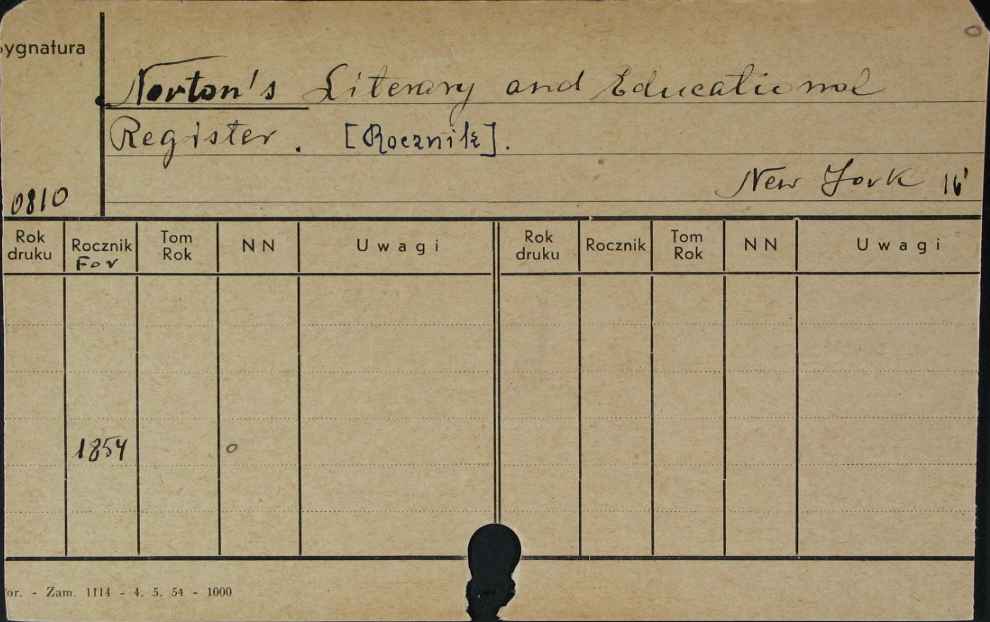 ygnatura
Norton's Literary and Educational
Register. [Rocznik].
New York 16'
0810
Rok druku Rocznik For Tom Rok NN Uwagi Rok druku Rocznik Tom Rok NN Uwagi
1854 o
or. - Zam. 1114 - 4. 5. 54 - 1000